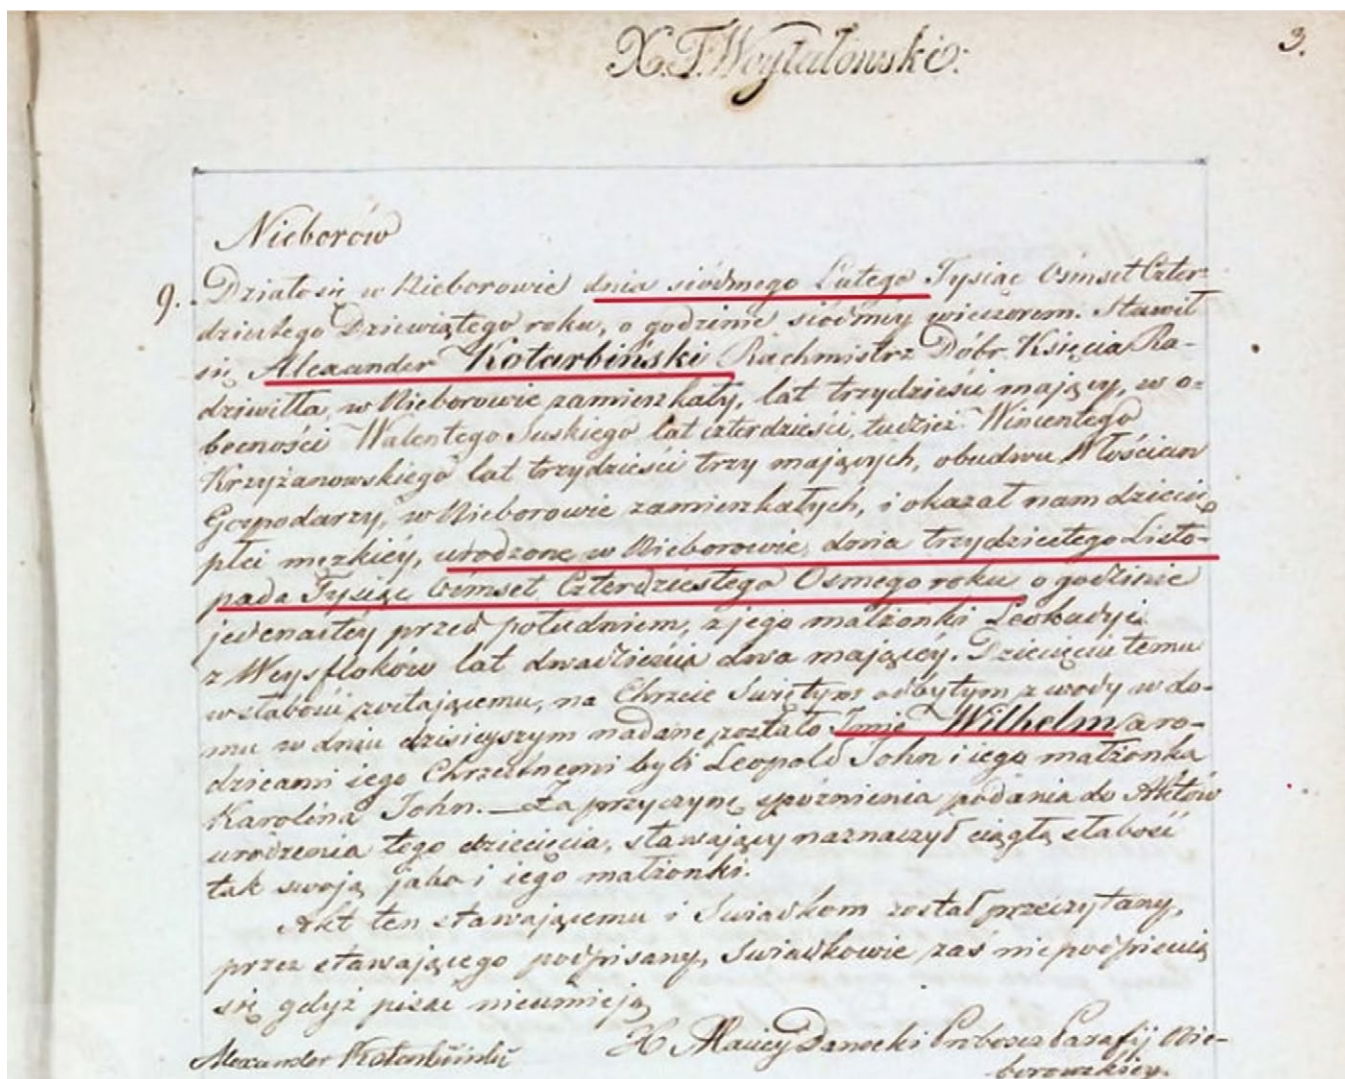 X. F. Woytałowski.
3.
Nieborów
9. Działo się w Nieborowie dnia siódmego Lutego Tysiąc Ośmset Czter-
dziestego Dziewiątego roku, o godzinie siódmey wieczorem. Stawił
się Alexander Kotarbiński Rachmistrz Dóbr Księcia Ra-
dziwiłła, w Nieborowie zamieszkały, lat trzydzieści mający, w o-
becności Walentego Suskiego lat czterdzieści, tudzież Wincentego
Krzyżanowskiego lat trzydzieści trzy mających, obudwu Włościan
Gospodarzy, w Nieborowie zamieszkałych, i okazał nam dziecię
płci męzkiey, urodzone w Nieborowie, dnia trzydziestego Listo-
pada Tysiąc Ośmset Czterdziestego Osmego roku o godzinie
jedenastey przed południem, z jego małżonki Leokadyi
z Weysfloków lat dwadzieścia dwa mającey. Dziecięciu temu
w słabości zostającemu, na Chrzcie Swiętym odbytym z wody w do-
mu w dniu dzisieyszym nadane zostało Imie Wilhelm, a ro-
dzicami iego Chrzestnemi byli Leopold John i iego małżonka
Karolina John. — Za przyczynę spóznienia podania do Aktów
urodzenia tego dziecięcia, stawający naznaczył ciągłą słabość
tak swoją jako i iego małżonki.
Akt ten stawającemu i Swiadkom został przeczytany,
przez stawającego podpisany, Swiadkowie zaś niepodpisali
się gdyż pisać nieumieją
Alexander Kotarbiński
X Maciey Danecki Proboszcz Parafij Nie-
borowskiey.